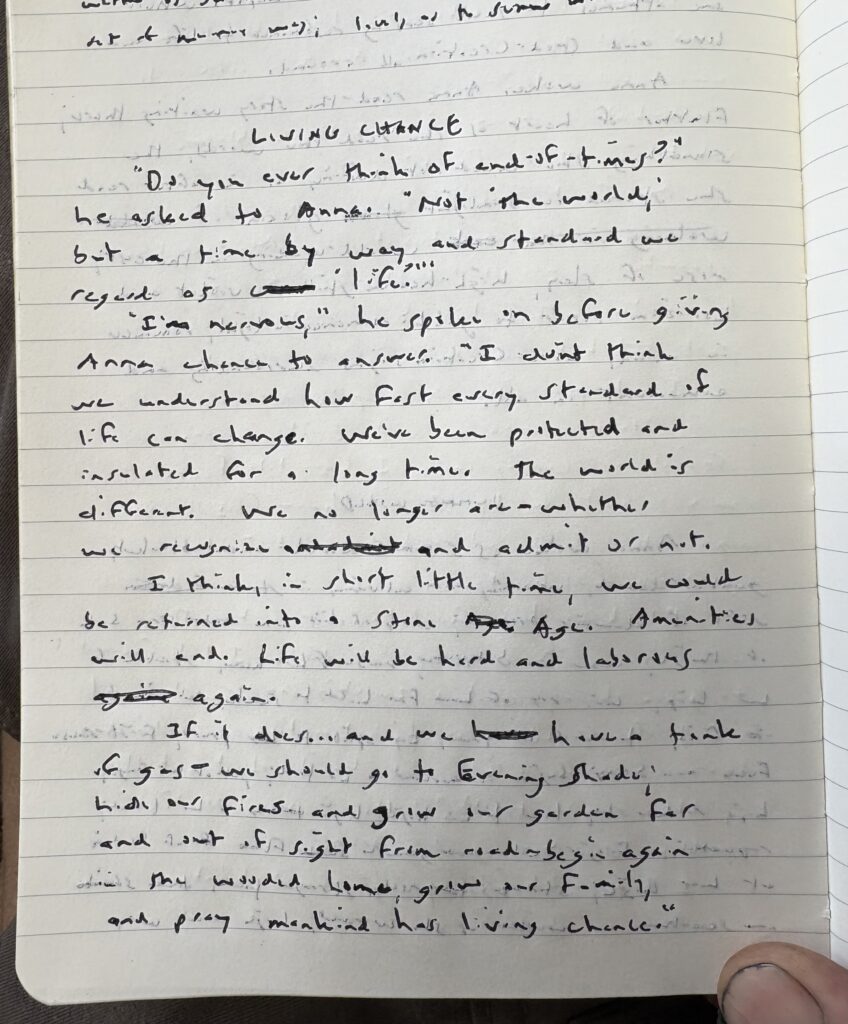 set of  way; lovely as to summer
LIVING CHANCE
"Do you ever think of end-of-times?"
he asked to Anna. "Not 'the world,'
but a time by way and standard we
regard as 'life?'"
"I'm nervous," he spoke on before giving
Anna chance to answer. "I don't think
we understand how fast every standard of
life can change. We've been protected and
insulated for a long time. The world is
different. We no longer are - whether
we recognize and admit or not.
I think, in short little time, we could
be returned into a Stone Age. Amenities
will end. Life will be hard and laborous
again.
If it does... and we have a tank
of gas - we should go to Evening Shade;
hide our fires and grow our garden far
and out of sight from road - begin again
in the wooded home, grow our family,
and pray mankind has living chance."